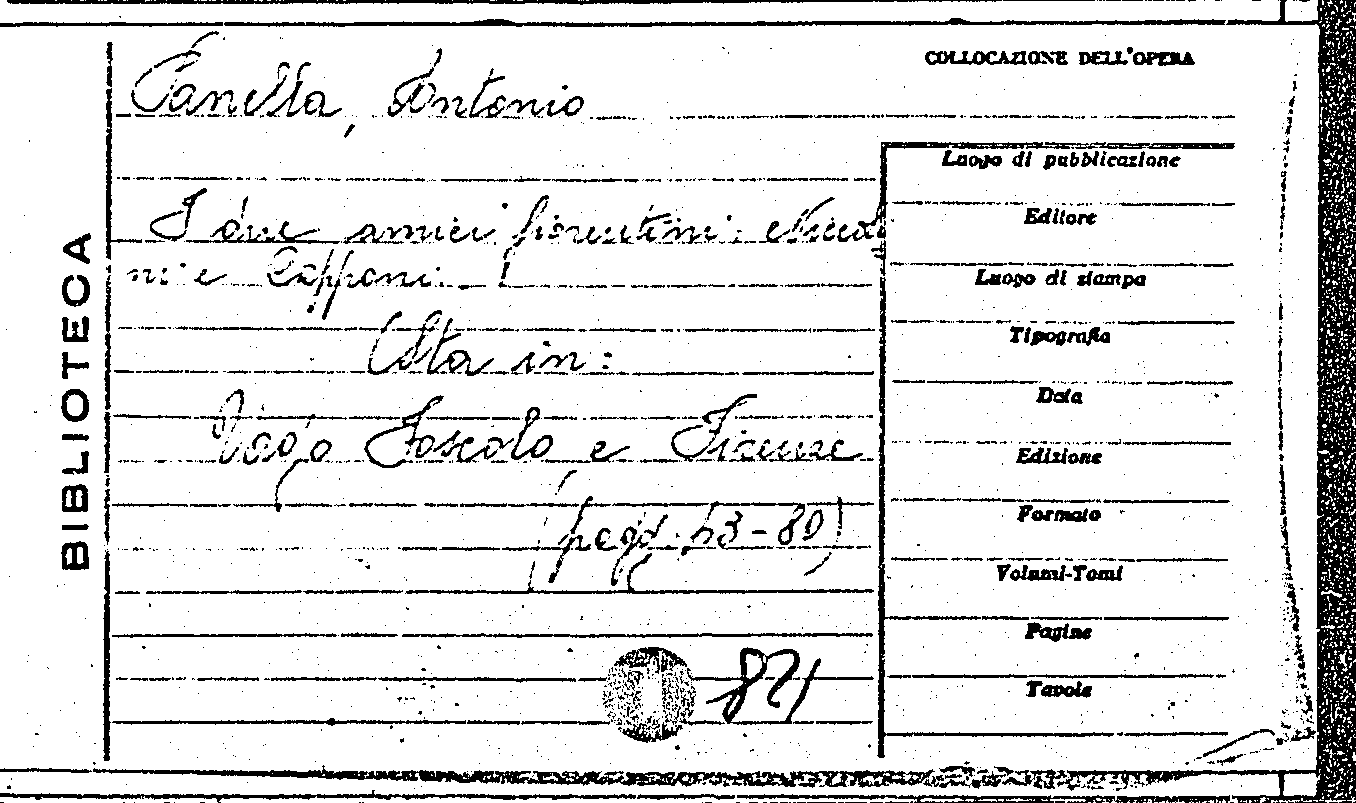 COLLOCAZIONE DELL'OPERA
Panella, Antonio
I due amici fiorentini: Niccoli
ni e Capponi.
Sta in:
Ugo Foscolo e Firenze
(pagg. 53-80)
821
BIBLIOTECA
Luogo di pubblicazione
Editore
Luogo di stampa
Tipografia
Data
Edizione
Formato
Volumi-Tomi
Pagine
Tavole